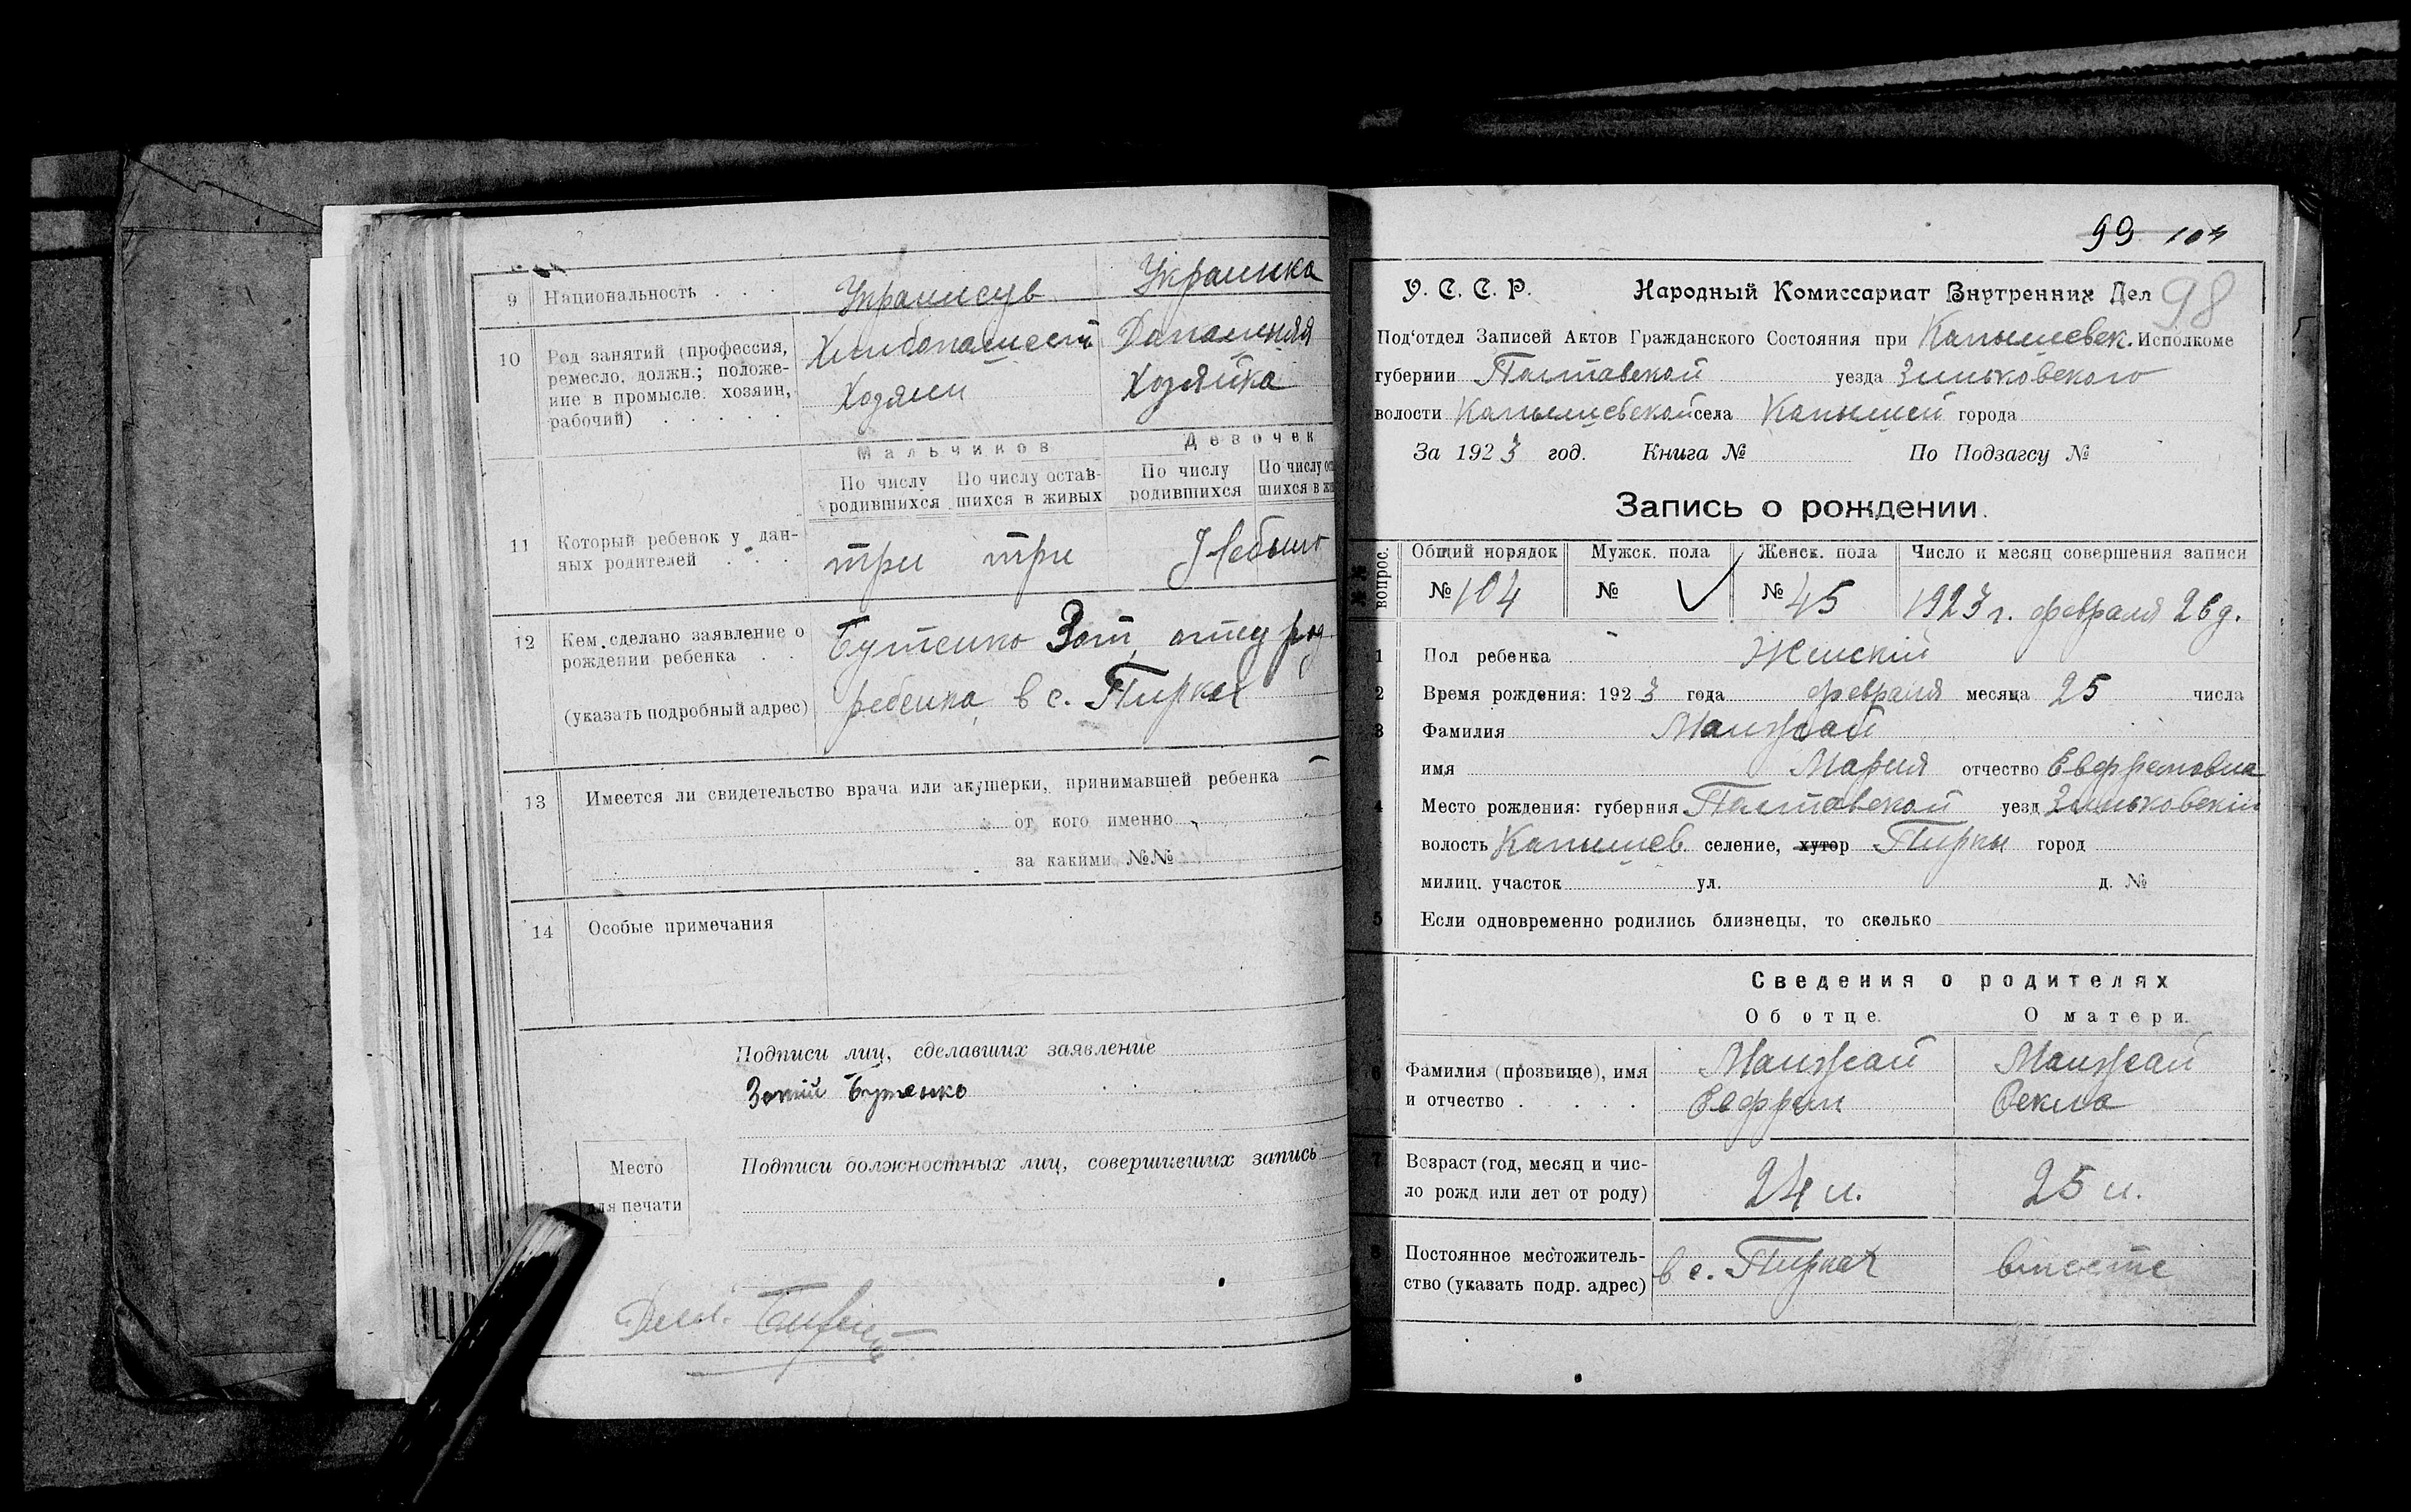 9 Национальность . . . Украинец Украинка
10 Род занятий (профессия, Хлебопашест Домашняя
ремесло, должн.; положе-
ние в промысле: хозяин, Хозяин Хозяйка
рабочий) . . . .
Мальчиков Девочек
По числу По числу остав- По числу По числу ос
родившихся шихся в живых родившихся шихся в жи
11 Который ребенок у дан- три три Небыло
ных родителей . . .
12 Кем сделано заявление о Бутенко Зот, отец
рождении ребенка . .
ребенка в с. Пирках
(указать подробный адрес)
13 Имеется ли свидетельство врача или акушерки, принимавшей ребенка —
от кого именно
за какими №№
14 Особые примечания
Подписи лиц, сделавших заявление
Зотий Бутенко
Место Подписи должностных лиц, совершивших запись
для печати
99 104
98
У. С. С. Р. Народный Комиссариат Внутренних Дел
Под'отдел Записей Актов Гражданского Состояния при Исполкоме
губернии Полтавской уезда Зиньковского
волости села города
За 1923 год. Книга № По Подзагсу №
Запись о рождении.
№№ вопрос. Общий порядок Мужск. пола Женск. пола Число и месяц совершения записи
№ 104 № ✓ № 45 1923 г. февраля 26 д.
1 Пол ребенка Женский
2 Время рождения: 1923 года февраля месяца 25 числа
3 Фамилия Манжай
имя Мария отчество Евфремовна
4 Место рождения: губерния Полтавской уезд Зиньковский
волость селение, хутор Пирки город
милиц. участок ул. д. №
5 Если одновременно родились близнецы, то сколько
Сведения о родителях
Об отце. О матери.
6 Фамилия (прозвище), имя Манжай Манжай
и отчество . . . . Евфрем Фекла
7 Возраст (год, месяц и чис- 24 л. 25 л.
ло рожд или лет от роду)
8 Постоянное местожитель- в с. Пирках вместе
ство (указать подр. адрес)